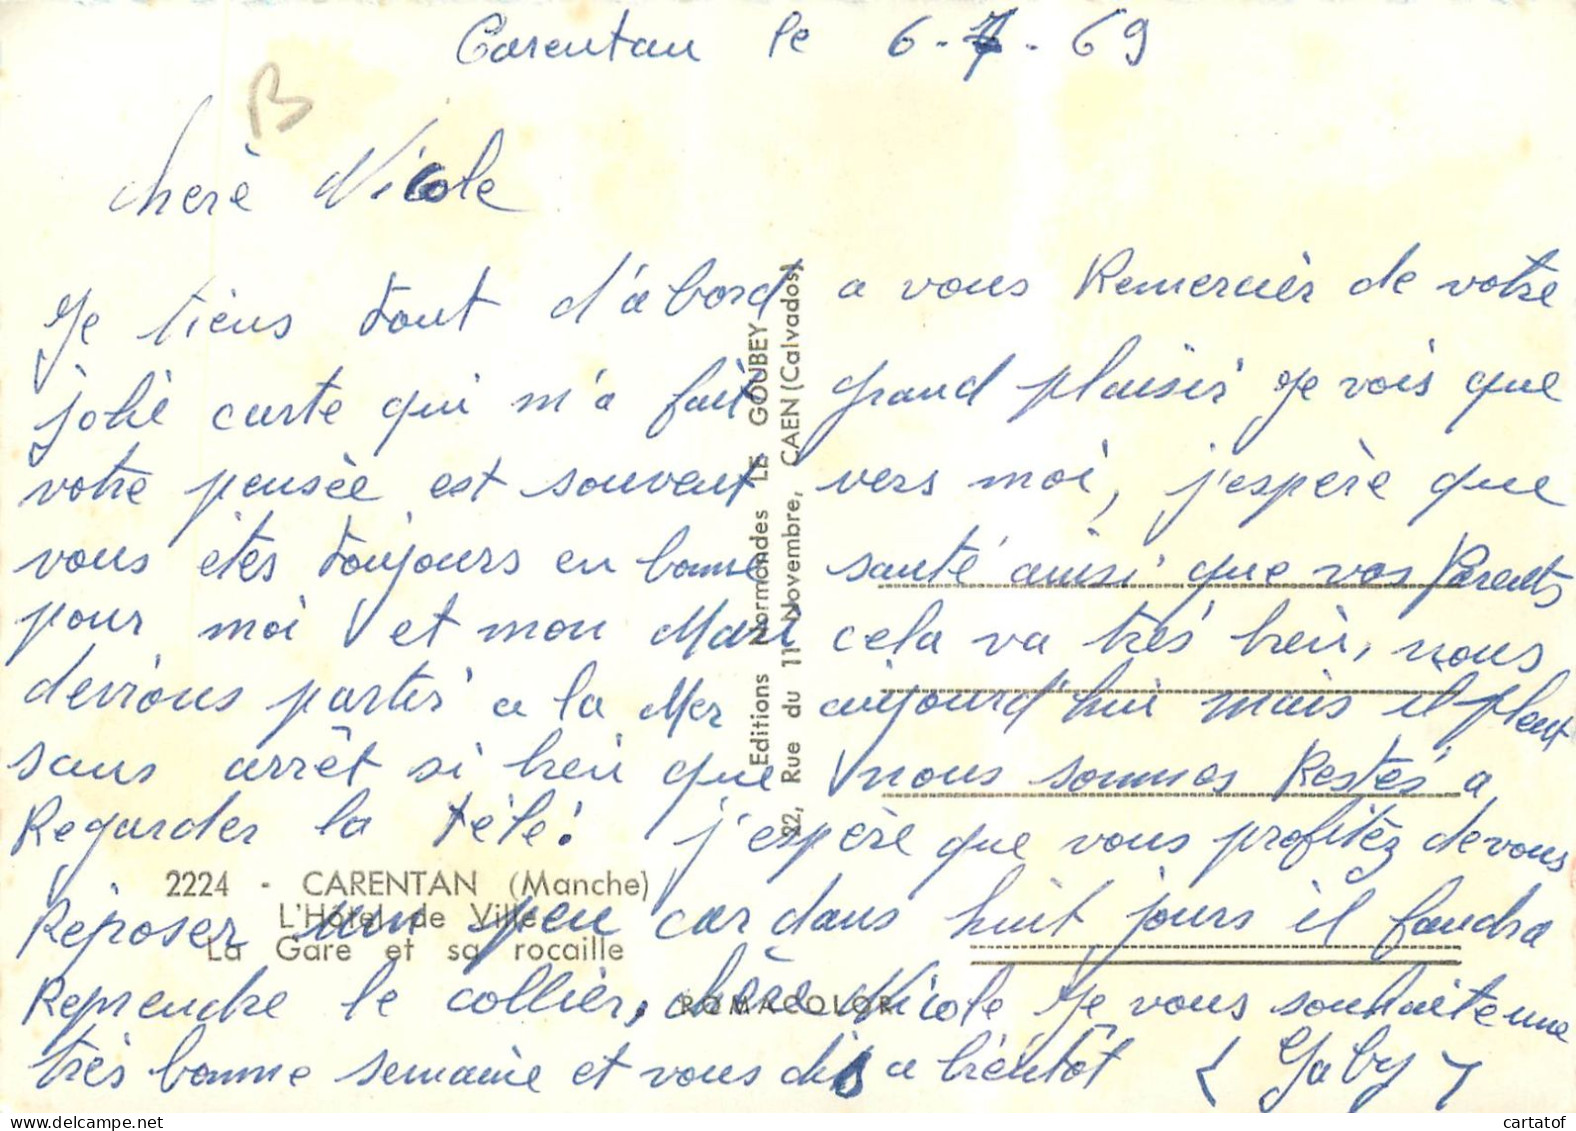 Carentan le 6-7-69
B
cherè Nicole
Je tiens tout d'abord a vous Remercièr de votre
jolie carte qui m'a fait grand plaisir Je vois que
votre pensée est souvent vers moi, j'espère que
vous êtes toujours en bonne santé ainsi que vos Parents
pour moi et mon Mari cela va très bien, nous
devrions partir a la Mer aujourd'hui mais il pleut
sans arrêt si bien que nous sommes Restés a
Regarder la télé! j'espère que vous profitèz de vous
Réposer un peu car dans huit jours il faudra
Reprendre le collier, chère Nicole Je vous souhaite une
très bonne semaine et vous dis a bientôt (Gaby)
2224 - CARENTAN (Manche)
L'Hôtel de Ville
La Gare et sa rocaille
Editions Normandes LE GOUBEY
22, Rue du 11 Novembre, CAEN (Calvados)
ROMACOLOR
cartatof